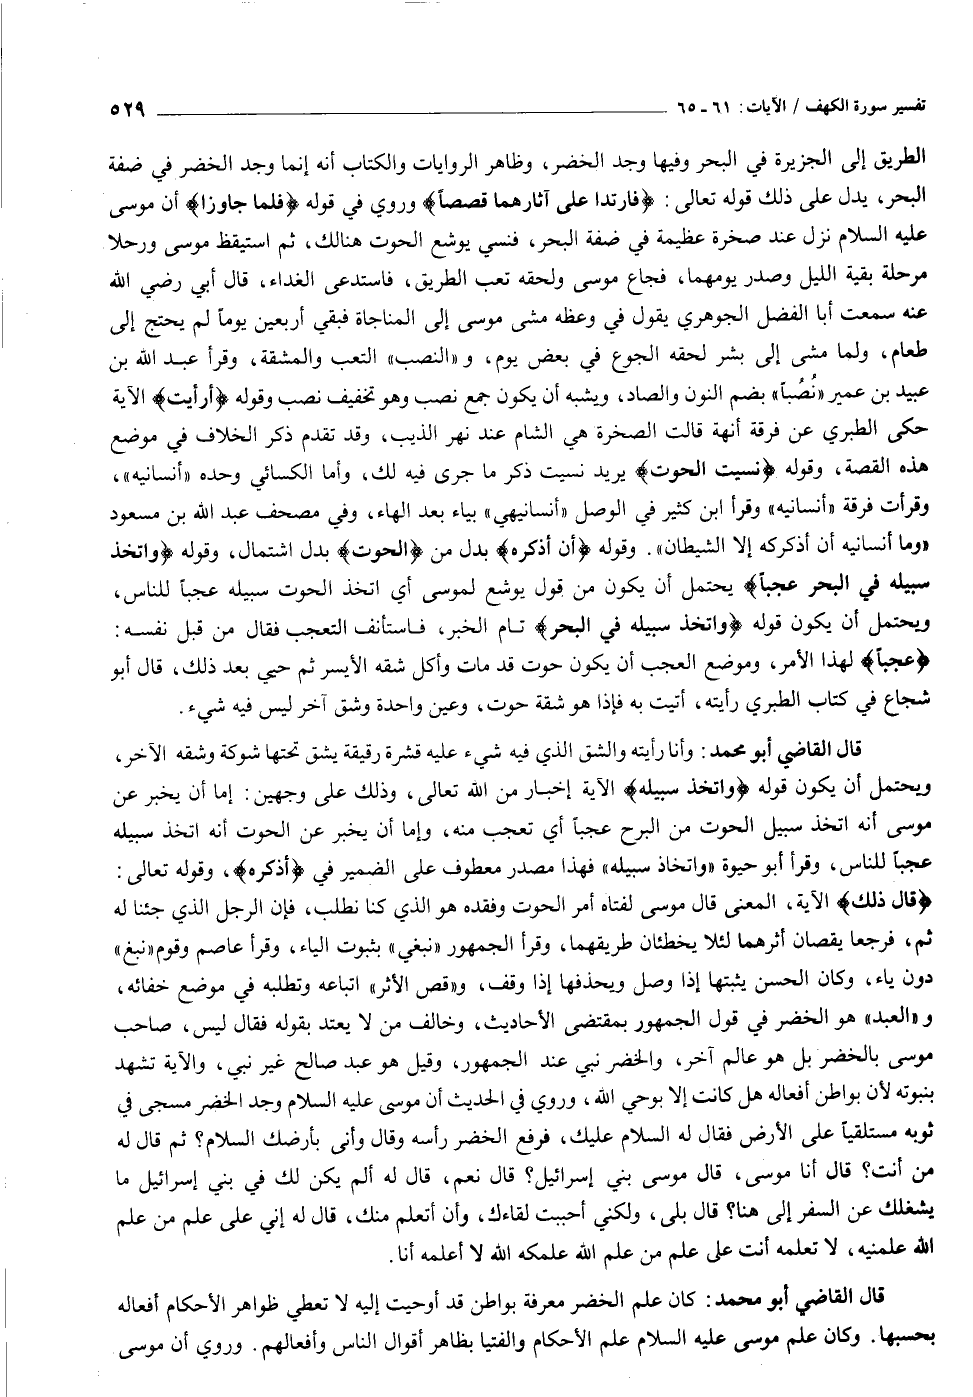 تفسير سورة الكهف / الآيات : ٦١ ـ ٦٥ ٥٢٩
الطريق إلى الجزيرة في البحر وفيها وجد الخضر، وظاهر الروايات والكتاب أنه إنما وجد الخضر في ضفة
البحر، يدل على ذلك قوله تعالى : ﴿فارتدا على آثارهما قصصاً﴾ وروي في قوله ﴿فلما جاوزا﴾ أن موسى
عليه السلام نزل عند صخرة عظيمة في ضفة البحر، فنسي يوشع الحوت هنالك، ثم استيقظ موسى ورحلا
مرحلة بقية الليل وصدر يومهما، فجاع موسى ولحقه تعب الطريق، فاستدعى الغداء، قال أبي رضي الله
عنه سمعت أبا الفضل الجوهري يقول في وعظه مشى موسى إلى المناجاة فبقي أربعين يوماً لم يحتج إلى
طعام، ولما مشى إلى بشر لحقه الجوع في بعض يوم، و «النصب» التعب والمشقة، وقرأ عبد الله بن
عبيد بن عمير «نُصُباً» بضم النون والصاد، ويشبه أن يكون جمع نصب وهو تخفيف نصب وقوله ﴿أرأيت﴾ الآية
حكى الطبري عن فرقة أنهة قالت الصخرة هي الشام عند نهر الذيب، وقد تقدم ذكر الخلاف في موضع
هذه القصة، وقوله ﴿نسيت الحوت﴾ يريد نسيت ذكر ما جرى فيه لك، وأما الكسائي وحده «أنسانيه»،
وقرأت فرقة «أنسانيه» وقرأ ابن كثير في الوصل «أنسانيهي» بياء بعد الهاء، وفي مصحف عبد الله بن مسعود
«وما أنسانيه أن أذكركه إلا الشيطان». وقوله ﴿أن أذكره﴾ بدل من ﴿الحوت﴾ بدل اشتمال، وقوله ﴿واتخذ
سبيله في البحر عجباً﴾ يحتمل أن يكون من قول يوشع لموسى أي اتخذ الحوت سبيله عجباً للناس،
ويحتمل أن يكون قوله ﴿واتخذ سبيله في البحر﴾ تام الخبر، فاستأنف التعجب فقال من قبل نفسه :
﴿عجباً﴾ لهذا الأمر، وموضع العجب أن يكون حوت قد مات وأكل شقه الأيسر ثم حيي بعد ذلك، قال أبو
شجاع في كتاب الطبري رأيته، أتيت به فإذا هو شقة حوت، وعين واحدة وشق آخر ليس فيه شيء.
قال القاضي أبو محمد : وأنا رأيته والشق الذي فيه شيء عليه قشرة رقيقة يشق تحتها شوكة وشقه الآخر،
ويحتمل أن يكون قوله ﴿واتخذ سبيله﴾ الآية إخبار من الله تعالى، وذلك على وجهين : إما أن يخبر عن
موسى أنه اتخذ سبيل الحوت من البرح عجباً أي تعجب منه، وإما أن يخبر عن الحوت أنه اتخذ سبيله
عجباً للناس، وقرأ أبو حيوة «واتخاذ سبيله» فهذا مصدر معطوف على الضمير في ﴿أذكره﴾، وقوله تعالى :
﴿قال ذلك﴾ الآية، المعنى قال موسى لفتاه أمر الحوت وفقده هو الذي كنا نطلب، فإن الرجل الذي جئنا له
ثم، فرجعا يقصان أثرهما لئلا يخطئان طريقهما، وقرأ الجمهور «نبغي» بثبوت الياء، وقرأ عاصم وقوم«نبغ»
دون ياء، وكان الحسن يثبتها إذا وصل ويحذفها إذا وقف، و«قص الأثر» اتباعه وتطلبه في موضع خفائه،
و «العبد» هو الخضر في قول الجمهور بمقتضى الأحاديث، وخالف من لا يعتد بقوله فقال ليس، صاحب
موسى بالخضر بل هو عالم آخر، والخضر نبي عند الجمهور، وقيل هو عبد صالح غير نبي، والآية تشهد
بنبوته لأن بواطن أفعاله هل كانت إلا بوحي الله، وروي في الحديث أن موسى عليه السلام وجد الخضر مسجى في
ثوبه مستلقياً على الأرض فقال له السلام عليك، فرفع الخضر رأسه وقال وأنى بأرضك السلام؟ ثم قال له
من أنت؟ قال أنا موسى، قال موسى بني إسرائيل؟ قال نعم، قال له ألم يكن لك في بني إسرائيل ما
يشغلك عن السفر إلى هنا؟ قال بلى، ولكني أحببت لقاءك، وأن أتعلم منك، قال له إني على علم من علم
الله علمنيه، لا تعلمه أنت على علم من علم الله علمكه الله لا أعلمه أنا.
قال القاضي أبو محمد : كان علم الخضر معرفة بواطن قد أوحيت إليه لا تعطي ظواهر الأحكام أفعاله
بحسبها. وكان علم موسى عليه السلام علم الأحكام والفتيا بظاهر أقوال الناس وأفعالهم. وروي أن موسى